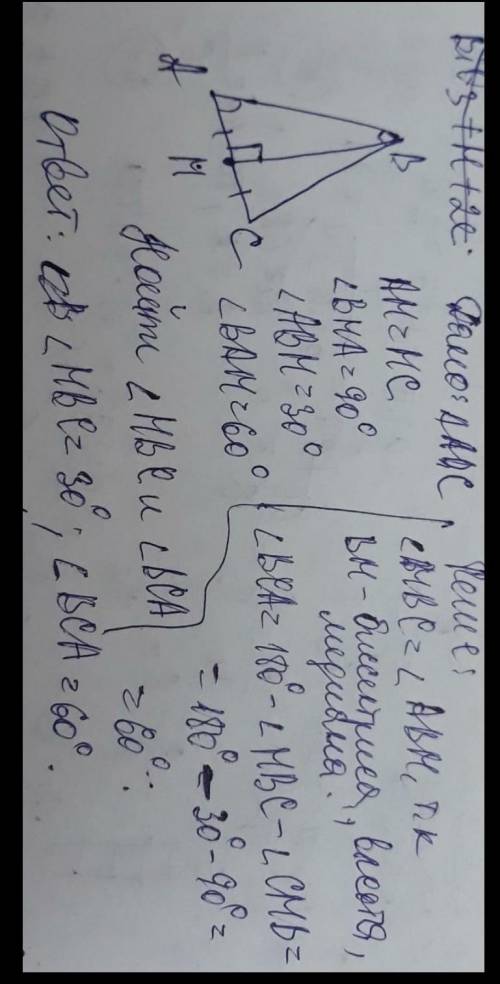 Дано: ΔABC
AM=MC
∠BMA=90°
∠ABM=30°
∠BAM=60°
Найти ∠MBC и ∠BCA
A
B
M
C
Реше:
∠MBC=∠ABM, т.к
BM-биссектриса, высота,
медиана.
∠BCA=180°-∠MBC-∠CMB=
=180°-30°-90°=
=60°.
Ответ: ∠MBC=30°; ∠BCA=60°.